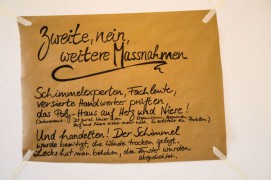 Zweite, nein,
weitere Massnahmen
Schimmelexperten, Fachleute,
versierte Handwerker prüften
das Poly-Haus auf Herz und Niere!
Und handelten! Der Schimmel
wurde beseitigt, die Wände trocken gelegt.
Lecks hat man behoben, den Fenster wurden
abgedichtet.